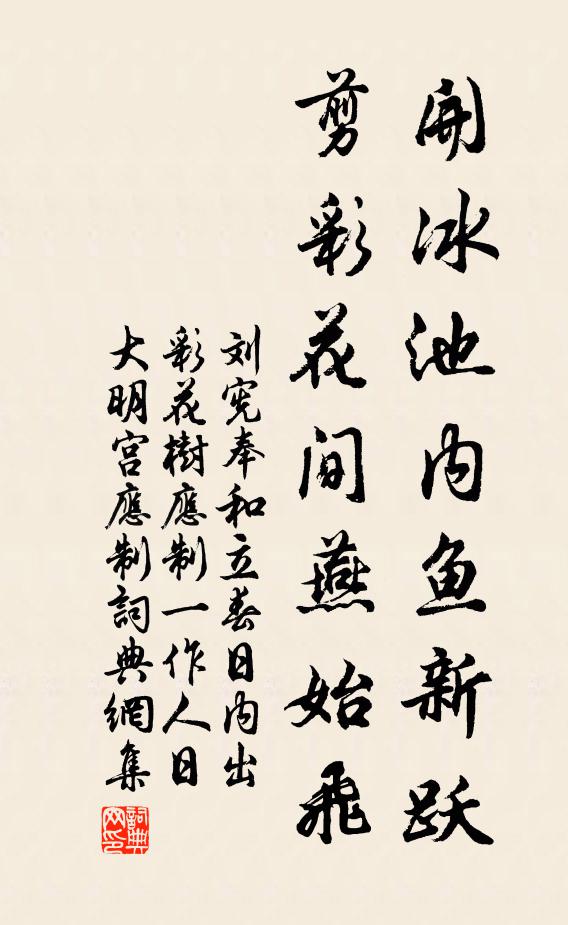 開冰池内鱼新跃
剪彩花间燕始飛
刘宪奉和立春日内出
彩花樹應制一作人日
大明宫應制詞典網集
詞典网印